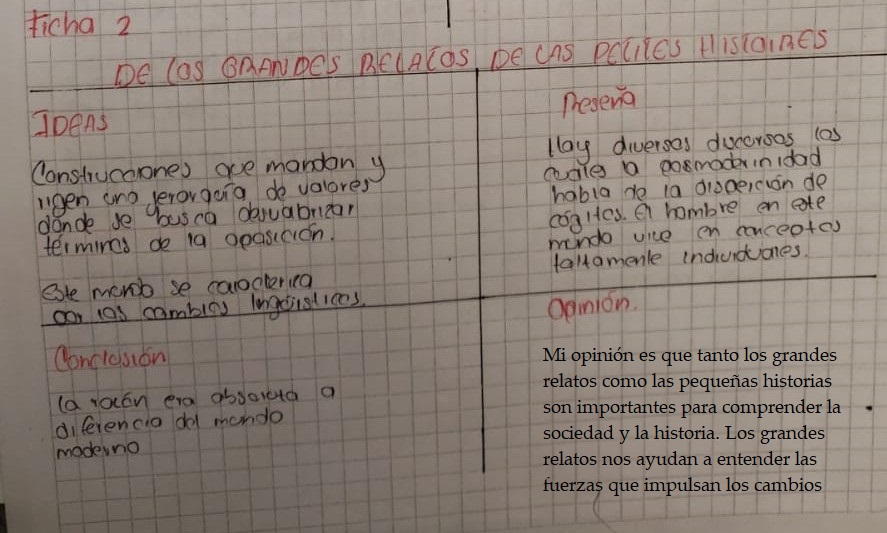 Ficha 2
DE LOS GRANDES RELATOS DE LAS PETITES HISTOIRES
IDEAS
Construcciones que mandan y
rigen una jerarquía de valores
donde se busca
términos de la oposición.
Este mundo se caracteriza
por los cambios lingüísticos.
Reseña
Hay diversos discursos los
cuales la posmodernidad
habla de la dispersión de
cógitos. El hombre en este
mundo vive en conceptos
totalmente individuales.
Conclusión
la razón era absoluta a
diferencia del mundo
moderno
Opinión.
Mi opinión es que tanto los grandes
relatos como las pequeñas historias
son importantes para comprender la
sociedad y la historia. Los grandes
relatos nos ayudan a entender las
fuerzas que impulsan los cambios